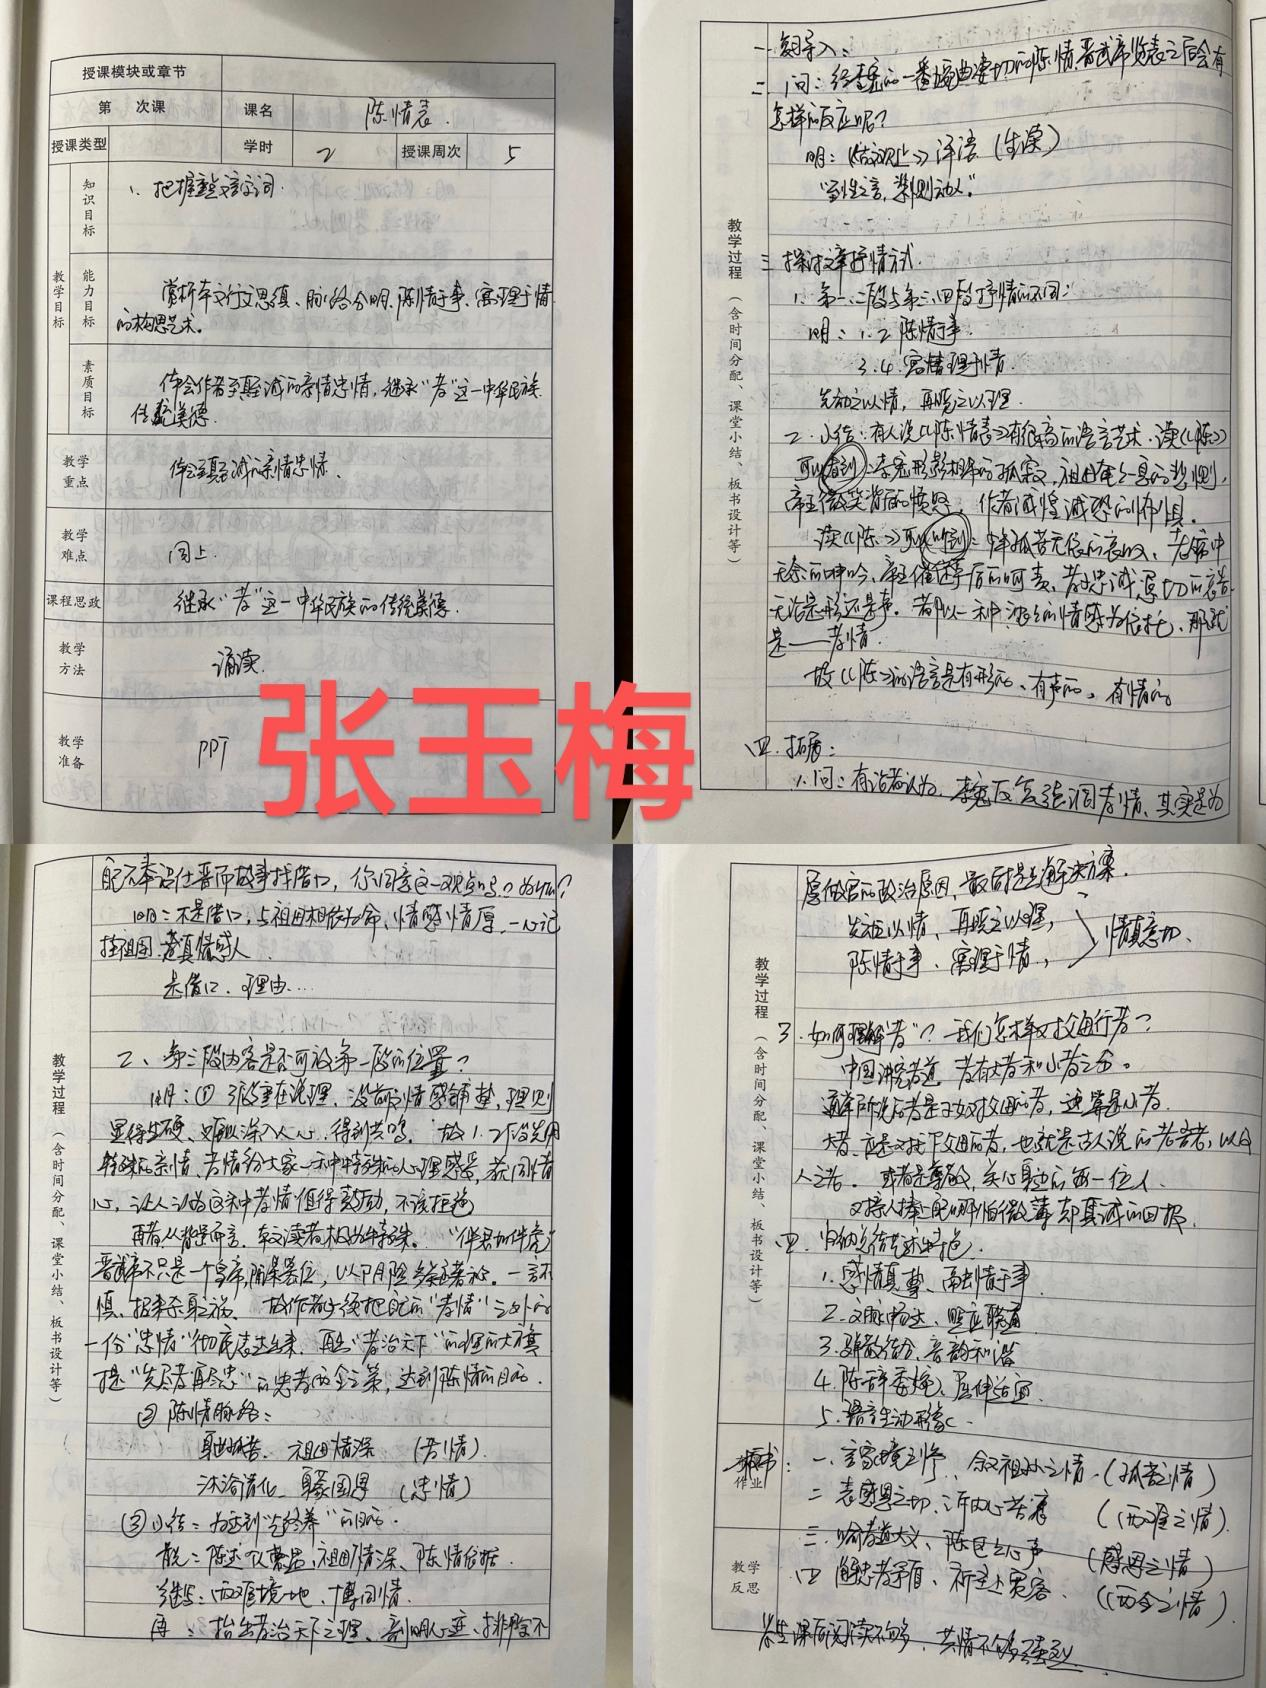 授课模块或章节
第 次课 课名 陈情表.
授课类型 学时 2 授课周次 5
教学目标
知识目标
1、把握重点文言字词.
能力目标
赏析本文行文思缜、脉络分明、陈情于事、寓理于情
的构思艺术。
素质目标
体会作者至真至诚的亲情忠情,继承"孝"这一中华民族
传统美德.
教学重点
体会至真至诚的亲情忠情.
教学难点
同上.
课程思政
继承"孝"这一中华民族的传统美德.
教学方法
诵读.
教学准备
PPT
张玉梅
教学过程(含时间分配、课堂小结、板书设计等)
一 复习导入:
二 1问:经李密的一番婉曲凄切的陈情,晋武帝览表之后会有
怎样的反应呢?
明:《古文观止》评语(生读)
"至性之言,自尔动人."
三 探讨文章抒情方式.
1.第一、二段与第三、四段抒情的不同:
明:1.2 陈情于事.
3.4 寓理于情.
先动之以情,再晓之以理.
2.小结:有人说《陈情表》有很高的语言艺术.读《陈》
可以看到:李密形影相吊的孤寂,祖母奄奄一息的悲恻,
帝王微笑背后的愤怒,作者诚惶诚恐的怖惧.
读《陈》可以听到:少年孤苦无依的哀叹、老病中
无奈的呻吟、帝王催逼声后的呵责、孝子忠诚凄切的哀告
无论是形还是声。都以一种浓浓的情感为依托,那就
是——孝情.
故《陈》的语言是有形的、有声的、有情的。
四.拓展:
1.问:有论者认为,李密反复强调孝情,其实是为
教学过程(含时间分配、课堂小结、板书设计等)
自己不奉诏仕晋而故事找借口,你同意这一观点吗?为什么?
明:不是借口,与祖母相依为命,情感情厚,一心记
挂祖母.是真情感人.
是借口.理由…
2、第三段内容是否可放第一段的位置?
明:①3段重在说理,没前段情感铺垫,理则
显得生硬、难以深入人心,得到共鸣.故1.2段先用
特殊的亲情、苦情给大家一种特殊的心理感受,获同情
心,让人认为这种孝情值得鼓励,不该拒绝
再者,从背景而言、本文读者极为特殊."伴君如伴虎"
晋武帝不只是一个皇帝,
慎,招来杀身之祸.故作者必须把自己的"孝情"之外的
一份"忠情"彻底表达出来,再在"孝治天下"的理的大旗
提"先尽孝再尽忠"的忠孝两全之策,达到陈情的目的.
②陈情脉络:
身世孤苦、祖母情深 (苦情).
沐浴清化、身蒙国恩 (忠情)
③小结:为达到"终养"的目的.
首先:陈述凤衅闵凶,祖母情深、陈情依据.
继以:两难境地、博同情.
再:抬出孝治天下之理、剖明心迹、排除不
教学过程(含时间分配、课堂小结、板书设计等)
愿做官的政治原因,最后提出解决方案.
先动以情,再晓之以理,
陈情于事、寓理于情, 情真意切.
3.如何理解"孝"?我们怎样对父母行孝?
中国讲究孝道,孝有大孝和小孝之分。
通常所说的孝是子女对父母的孝,这算是小孝.
大孝,应是对天下父母的孝,也就是古人说的老吾老,以及
人之老.或者是尊敬,关心身边每一位人.
对亲人捧上自己哪怕微薄却真诚的回报
四.归纳总结艺术特色.
1.感情真挚、寓情于事
2.文脉畅达、照应联通
3.骈散结合、音韵和谐
4.陈辞委婉、屈伸适宜.
5.语言生动形象.
作业 板书:
一.言家境之惨、叙祖孙之情.(孤苦之情)
二 表感恩之切、诉内心苦衷 (两难之情).
三.喻孝道大义、陈区区心声 (感恩之情)
四 解忠孝矛盾、祈圣上宽容. (两全之情).
教学反思
学生课后阅读不够,共情不够强烈.